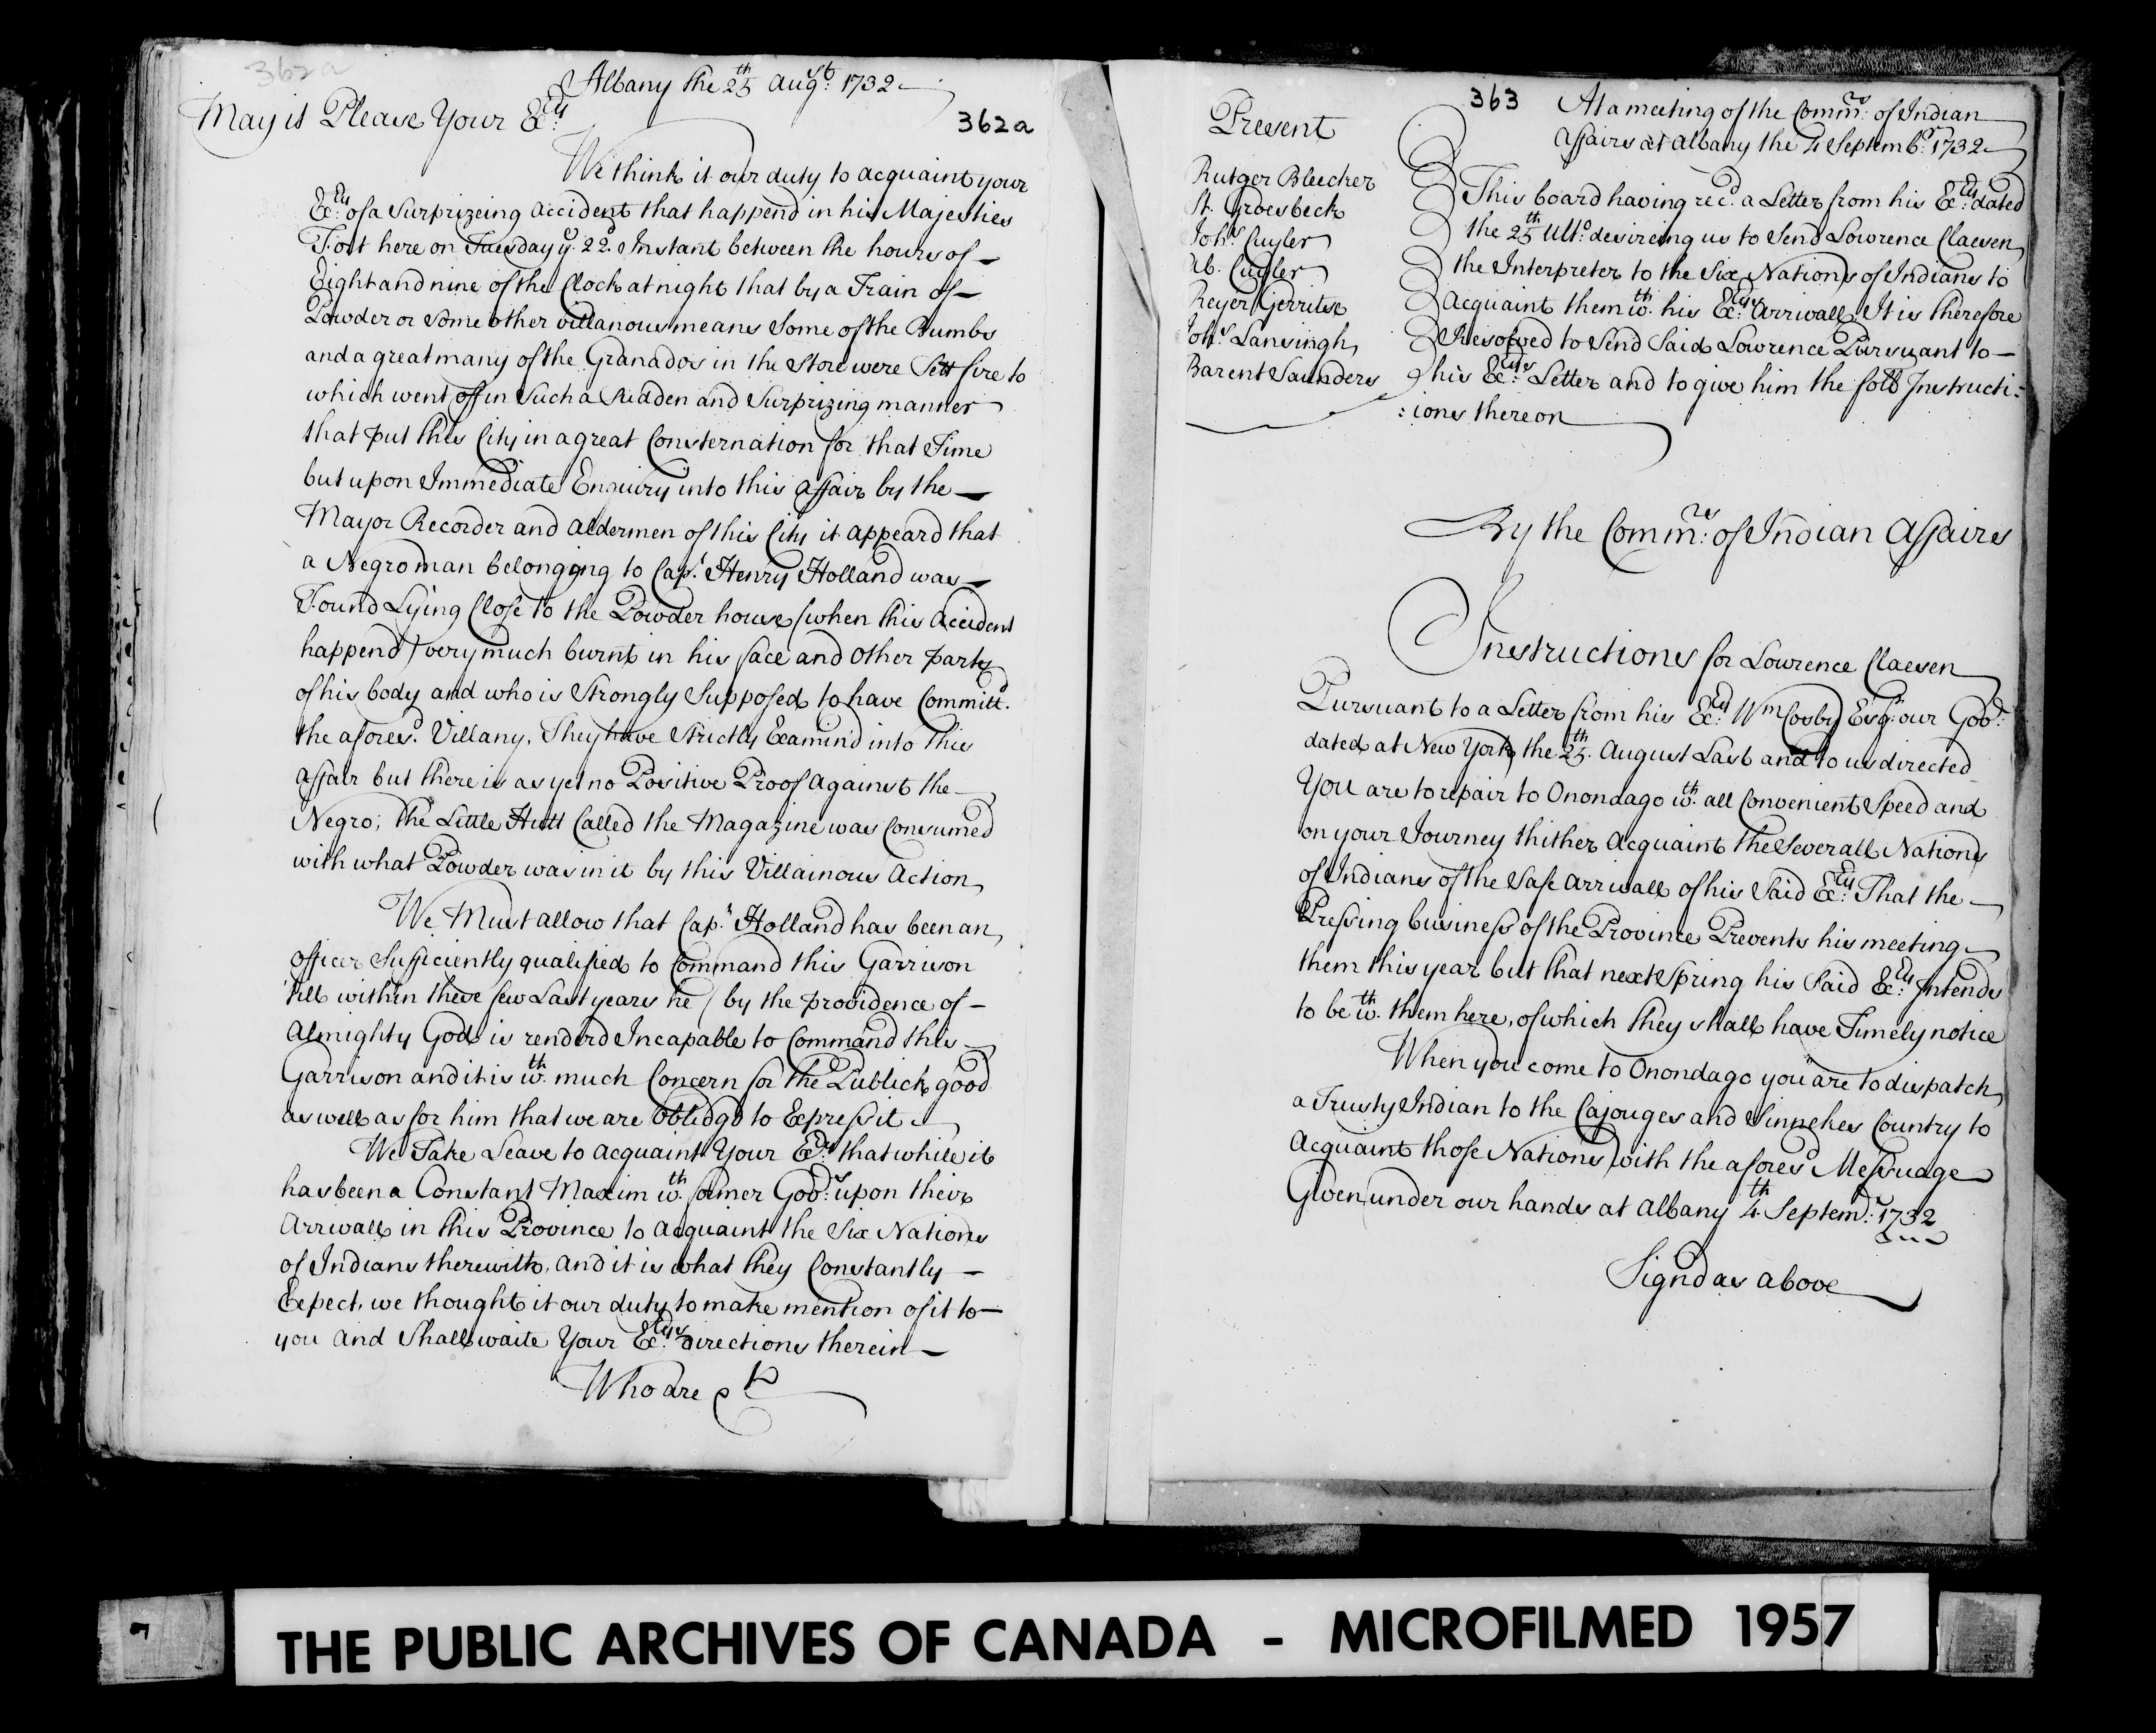 362a
Albany the 25th Augst: 1732
May it Please Your Excly:
362a
We think it our duty to acquaint your
Excly: of a Surprizeing accident that happend in his Majesties
Fort here on Tuesday ye. 22d. Instant between the hours of
Eight and nine of the Clock at night that by a Train of
Powder or some other villanous means Some of the Bumbs
and a great many of the Granados in the Store were Sett fire to
which went off in Such a Sudden and Surprizing manner
that put this City in a great Consternation for that Time
but upon Immediate Enquiry into this affair by the
Mayor Recorder and aldermen of this City it appeard that
a Negro man belonging to Capt. Henry Holland was
Found Lying Close to the Powder house (when this accident
happend) very much burnt in his face and other parts
of his body and who is Strongly Supposed to have Committd.
the aforesd. Villany, They have Strictly Examind into this
affair but there is as yet no Positive Proof against the
Negro; the Little Hutt Called the Magazine was Consumed
with what Powder was in it by this Villainous action
We Must allow that Capt. Holland has been an
officer Sufficiently qualified to Command this Garrison
till within these few Last years he (by the providence of
almighty God is renderd Incapable to Command this
Garrison and it is wth. much Concern for the Publick good
as well as for him that we are oblidgd to Express it
We Take Leave to acquaint Your Excly: that while it
has been a Constant Maxim wth. former Govrs: upon their
Arrivall in this Province to acquaint the Six Nations
of Indians therewith, and it is what they Constantly
Expect, we thought it our duty to make mention of it to
you and Shall waite Your Exclys: directions therein
Who are &c
363
At a meeting of the Commrs: of Indian
affairs at albany the 4 Septembr: 1732
Present
Rutger Bleecker
St. Groesbeck
Johs Cuyler
Ab. Cuyler
Reyer Gerritse
Johs. Lansingh
Barent Saunders
This board having recd. a Letter from his Excly: dated
the 25th Ulto. desireing us to Send Lowrence Claesen
the Interpreter to the Six Nations of Indians to
acquaint them wth. his Exclys: arrivall, It is therefore
Resolved to Send Said Lowrence Pursuant to
his Exclys: Letter and to give him the foll Instructi=
:ions thereon
By the Commrs: of Indian Affairs
Instructions for Lowrence Claesen
Pursuant to a Letter from his Excly: Wm Cosby Esqr: our Govr:
dated at New York the 25th. August Last and to us directed
You are to repair to Onondago wth. all Convenient Speed and
on your Journey thither acquaint the Severall Nations
of Indians of the Safe arrivall of his Said Excly: That the
Pressing business of the Province Prevents his meeting
them this year but that next Spring his Said Excly: Intends
to be wth. them here, of which they shall have Timely notice
When you come to Onondago you are to dispatch
a Trusty Indian to the Cajouges and Sinnekes Country to
acquaint those Nations with the aforesd Messuage
Given under our hands at albany 4th. Septemr: 1732
Signd as above
THE PUBLIC ARCHIVES OF CANADA - MICROFILMED 1957